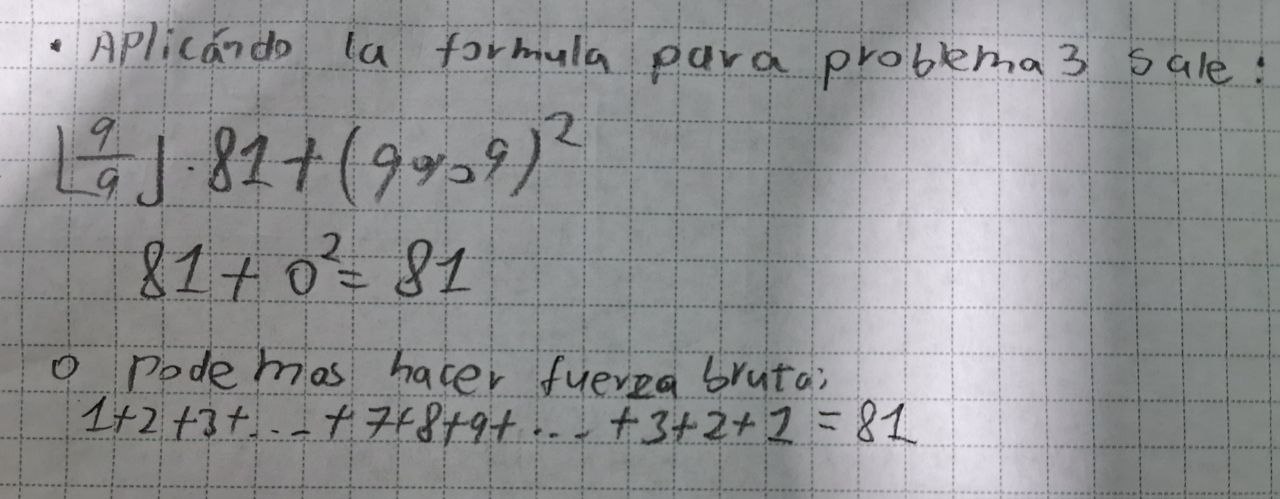 • Aplicándo la formula para problema 3 sale:
⌊9/9⌋ · 81 + (9 % 9)²
81 + 0² = 81
o podemos hacer fuerza bruta;
1+2+3+...+7+8+9+...+3+2+1 = 81